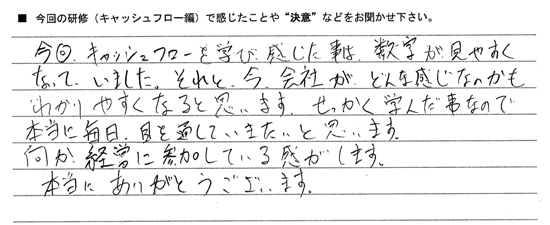 ■ 今回の研修（キャッシュフロー編）で感じたことや“決意”などをお聞かせ下さい。
今回、キャッシュフローを学び感じた事は、数字が見やすく
なっていました。それと、今、会社が、どんな感じなのかも
わかりやすくなると思います。せっかく学んだ事なので
本当に毎日、目を通していきたいと思います。
何か、経営に参加している感がします。
本当にありがとうございます。